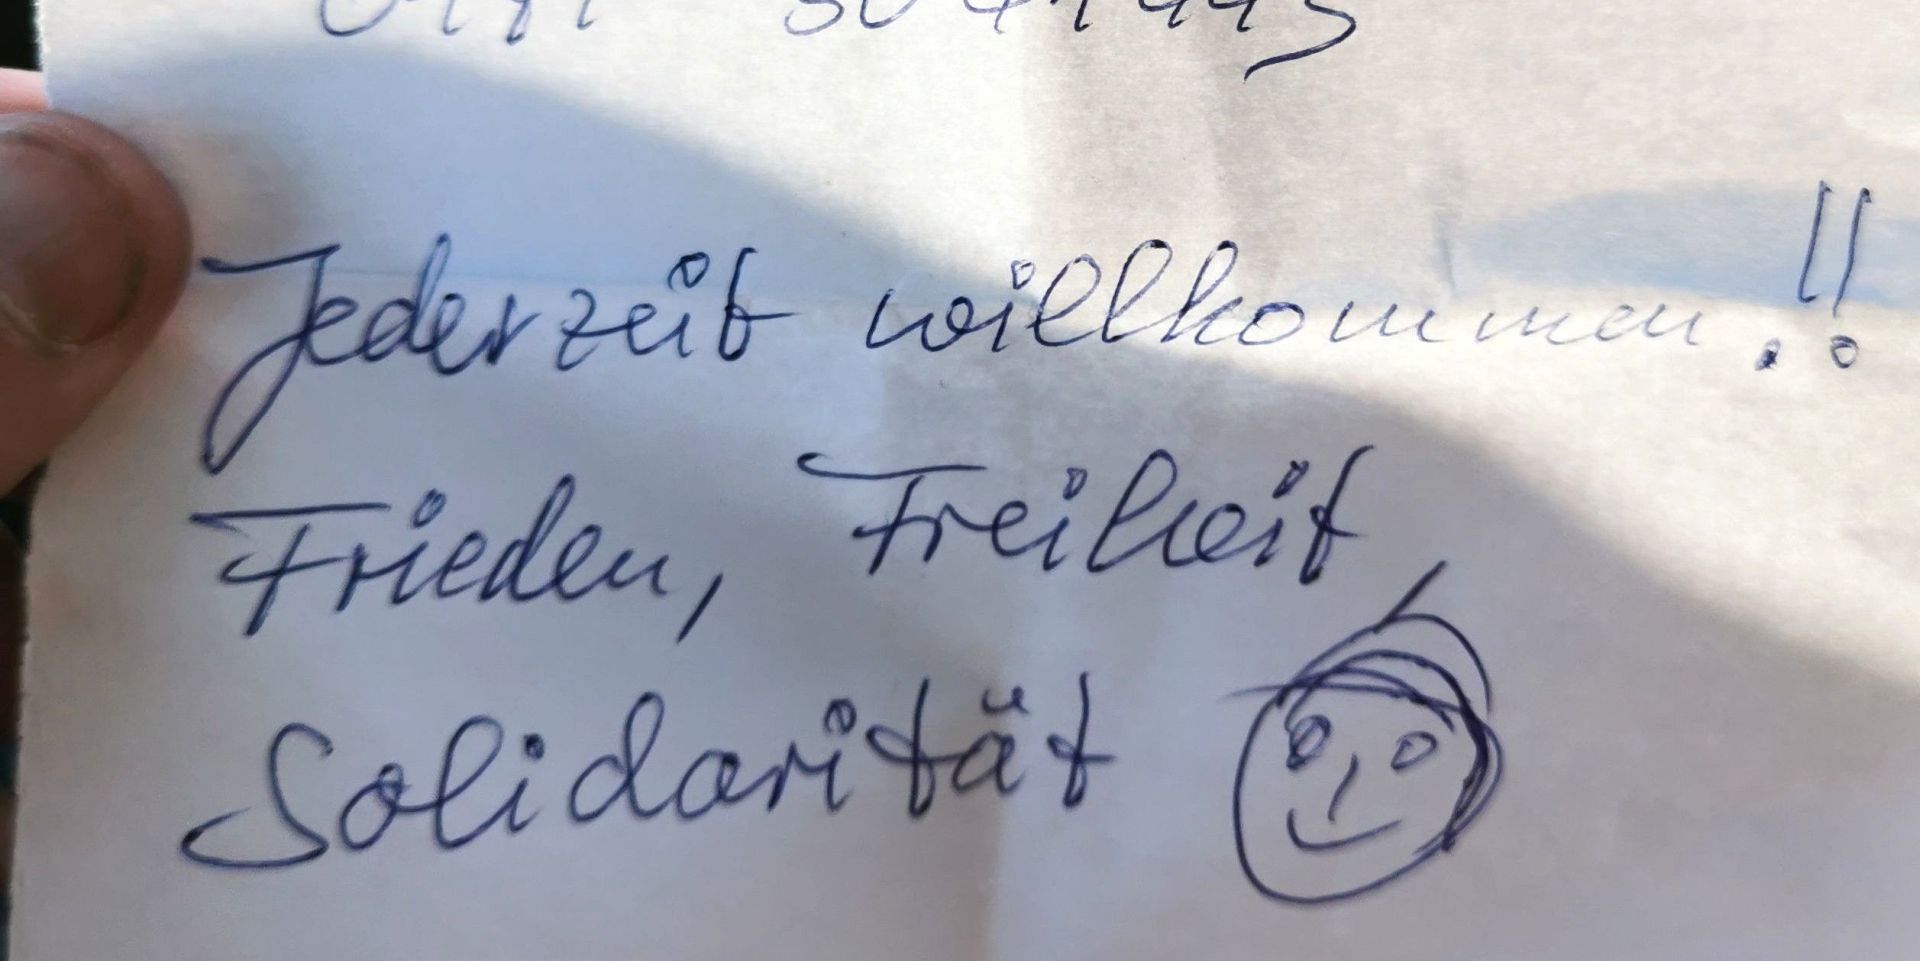 Jederzeit willkommen!!
Frieden, Freiheit,
Solidarität